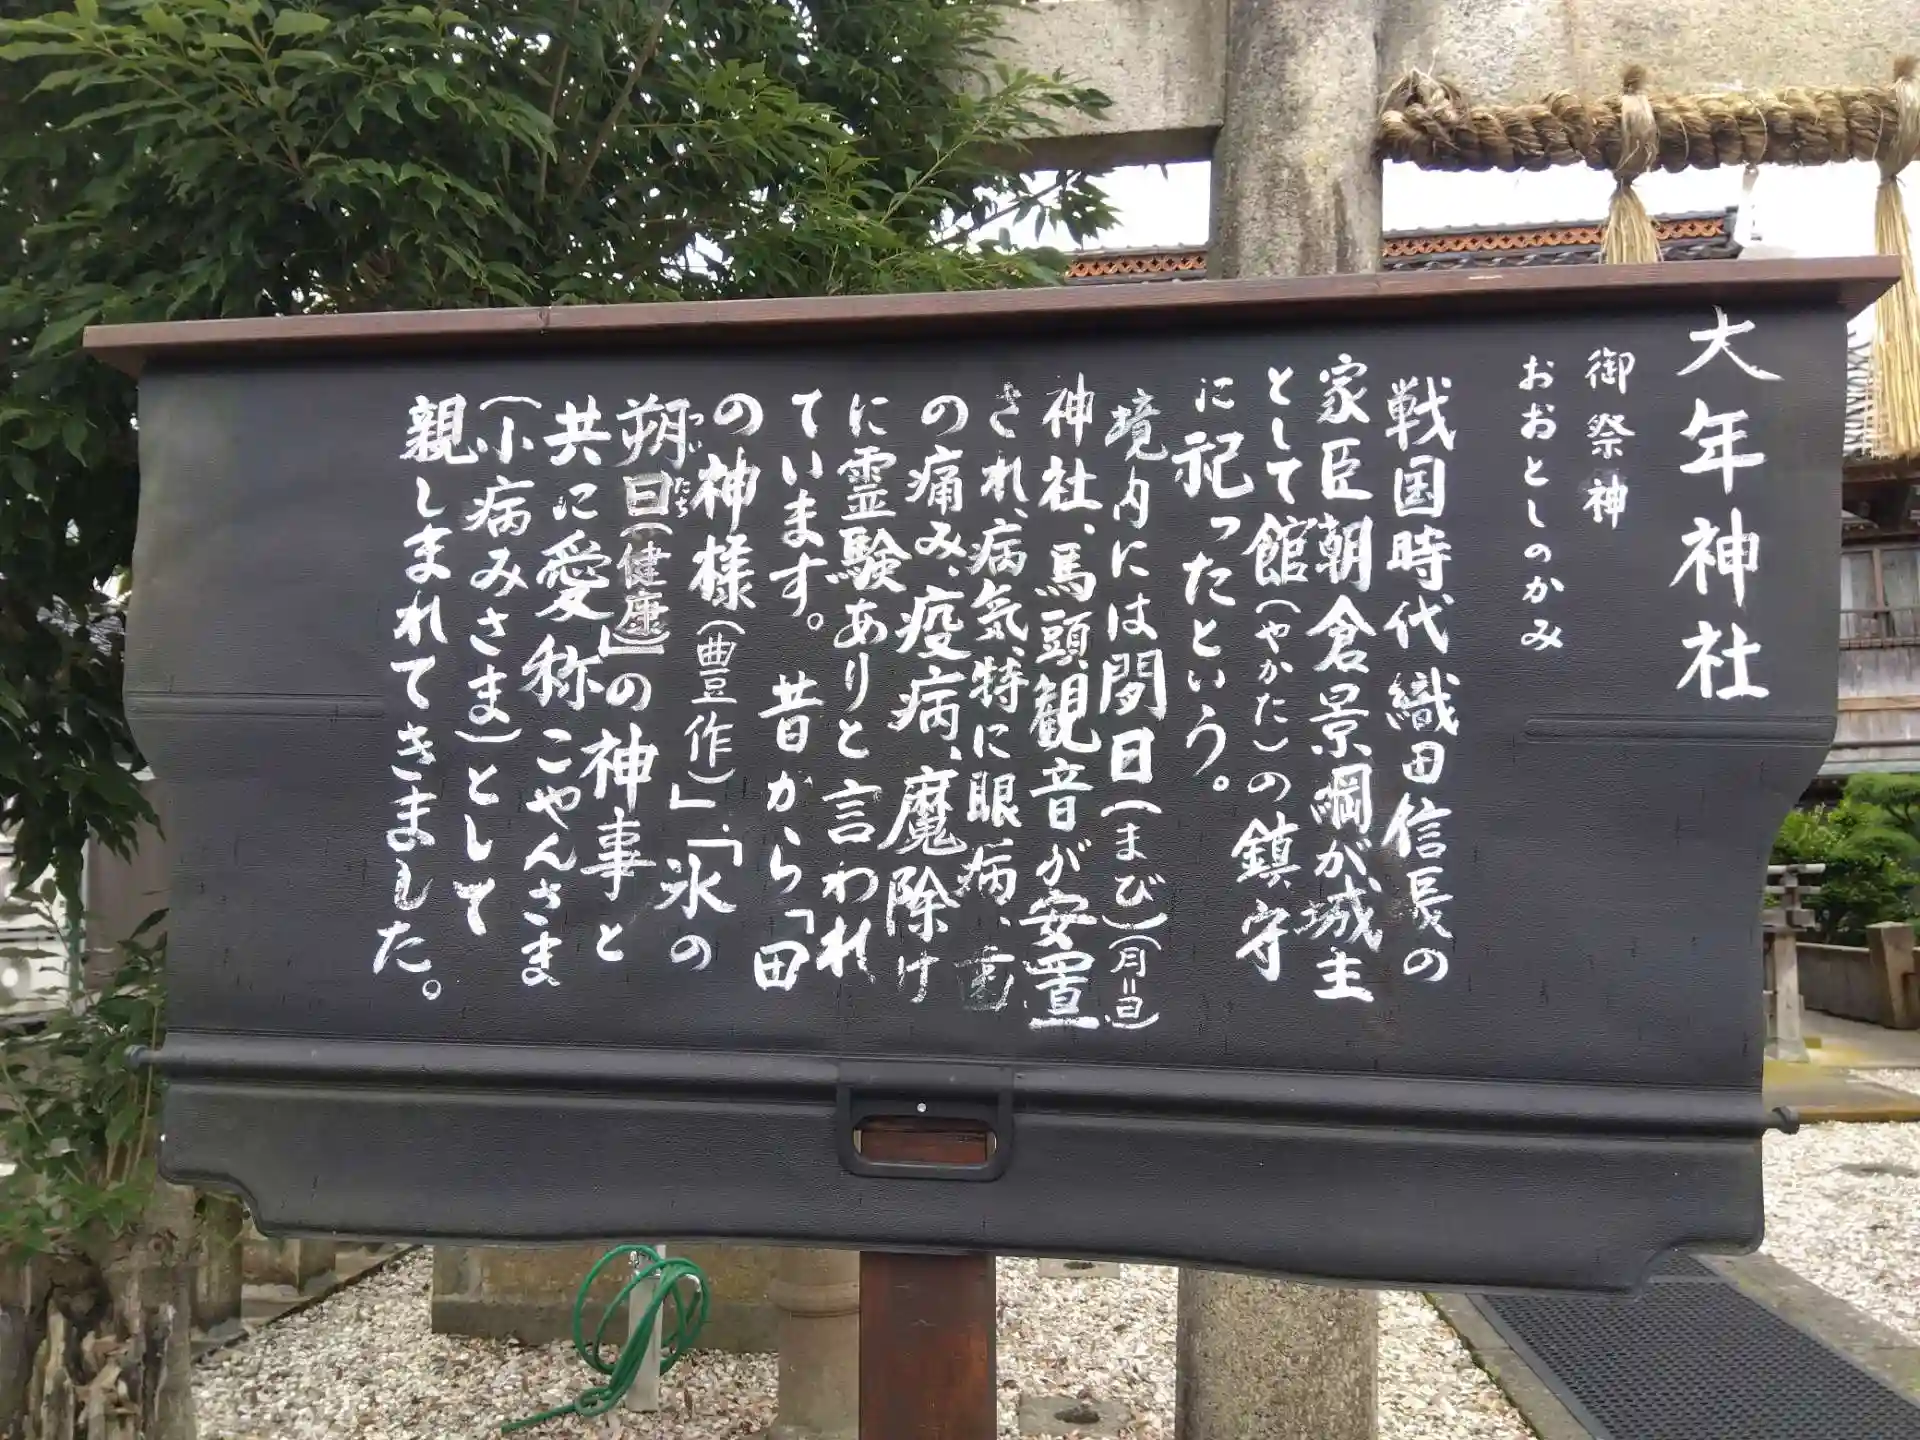 大年神社
御祭神
おおとしのかみ
戦国時代織田信長の
家臣朝倉景綱が城主
として館(やかた)の鎮守
に祀ったという。
境内には閒日(まび)(月=日)
神社、馬頭観音が安置
され、病気、特に眼病、歯
の痛み、疫病、魔除け
に霊験ありと言われ
ています。昔から「田
の神様(豊作)」、「氷の
朔日(健康)」の神事と
ついたち
共に愛称こやんさま
(小病みさま)として
親しまれてきました。